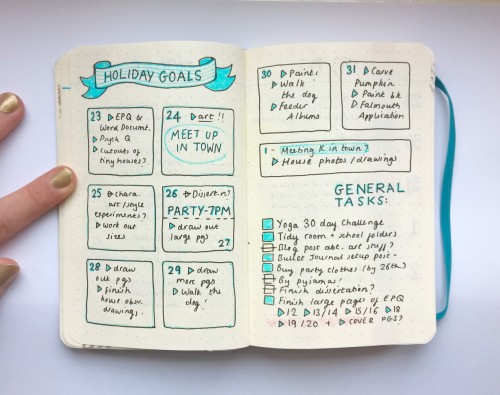 HOLIDAY GOALS
23 ▷ EPQ &
Word Document.
▷ Psych Q
▷ cutouts of
tiny houses?
24 ▷ art!!
MEET UP
IN TOWN
25 ▷ chara.
art/style
experiments?
▷ work out
sizes
26 ▷ Dissert.n?
PARTY-7PM
▷ draw out
large pgs
27
28 ▷ draw
out pgs
▷ finish
house obsv.
drawings.
29 ▷ draw
more pgs
▷ Walk the
dog!
30 ▷ Paint!
▷ Walk
the dog
▷ Feeder
Albums
31 ▷ Carve
Pumpkin
▷ Paint bk
▷ Falmouth
Application
1 - Meeting K in town?
▷ House photos/drawings
GENERAL
TASKS:
Yoga 30 day Challenge
Tidy room + school folders
Blog post abt. art stuff?
Bullet Journal setup post -
Buy party clothes (by 26th)
By pyjamas!
Finish dissertation?
Finish large pages of EPQ
▷ 12 ▷ 13/14 ▷ 15/16 ▷ 18
▷ 19/20 + ▷ COVER PGS?